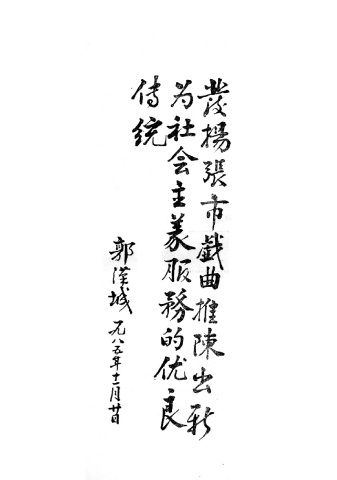 發揚張市戲曲推陳出新
为社会主義服務的优良
传统
郭漢城
一九八五年十二月廿日